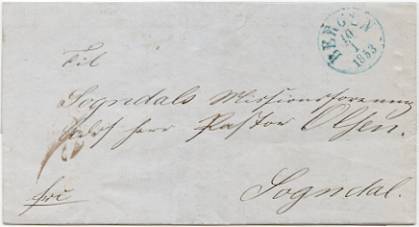 BERGEN
10
1
1853
Til
Sogndals Missionsforening
Herr Pastor Olsen.
fri
Sogndal.